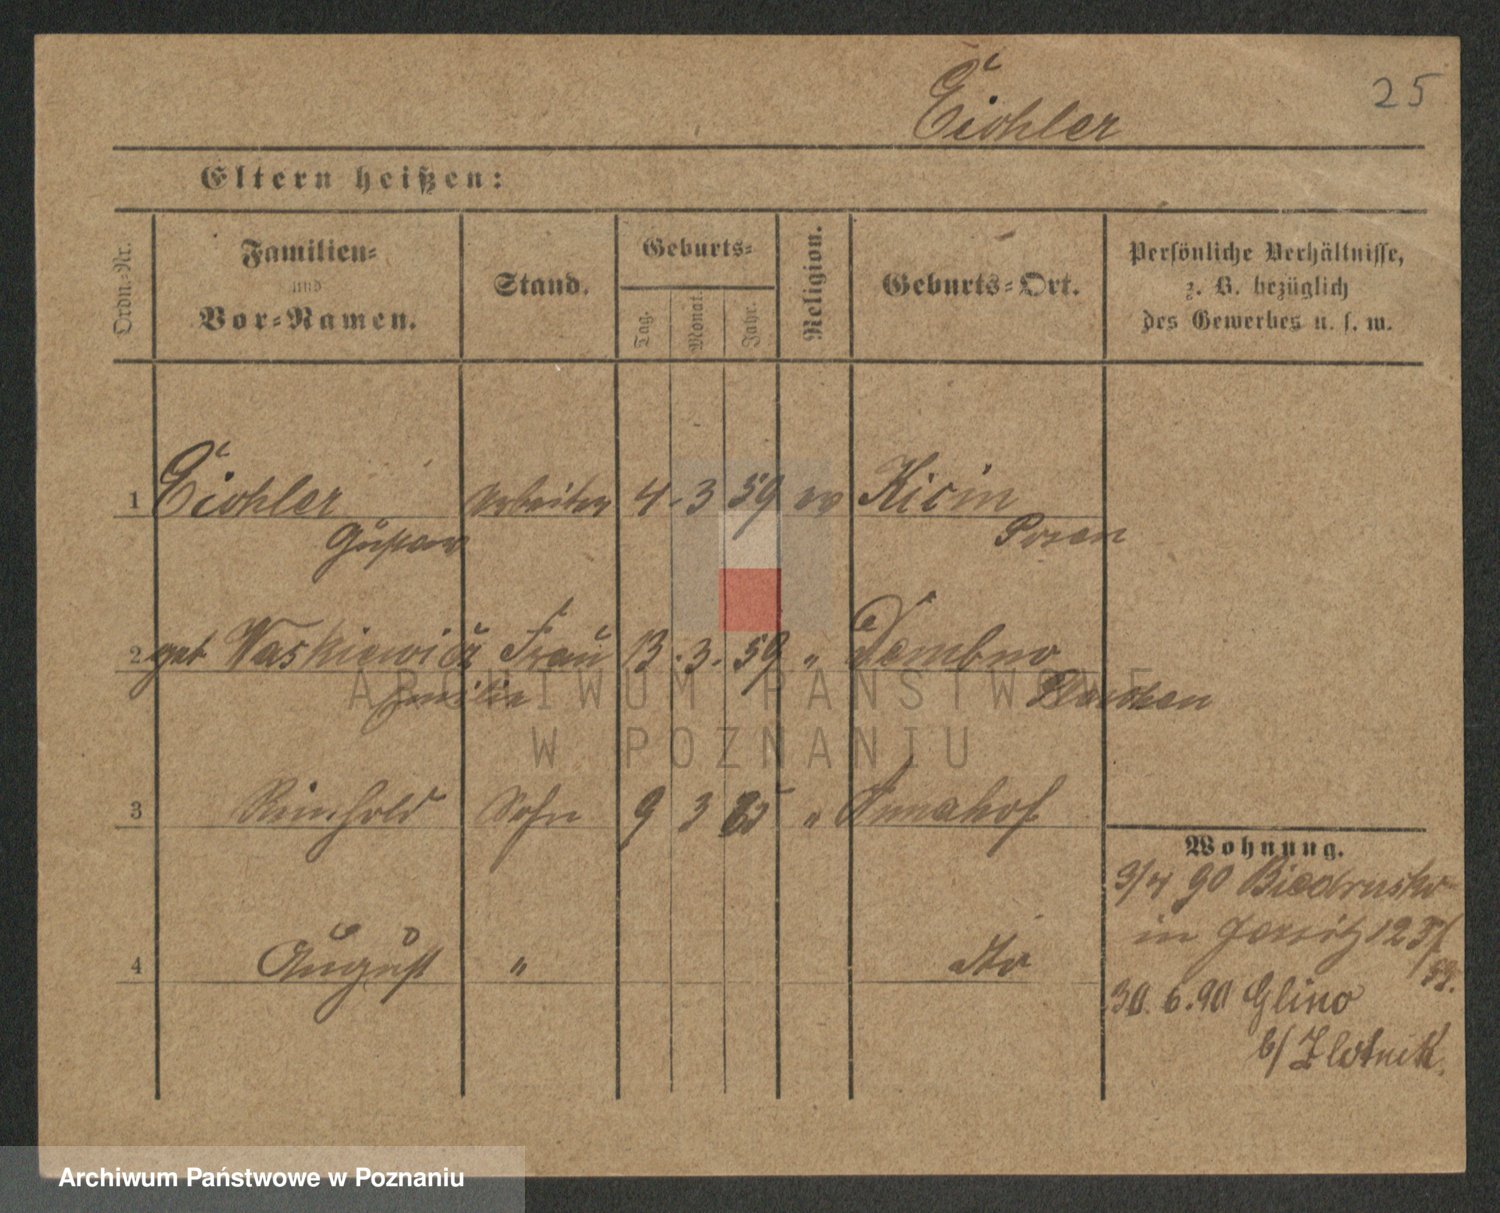 Eichler
25
Eltern heißen:
Ordn.-Nr.
Familien-
und
Vor-Namen.
Stand.
Geburts-
Tag.
Monat.
Jahr.
Religion.
Geburts-Ort.
Persönliche Verhältnisse,
z. B. bezüglich
des Gewerbes u. s. w.
1 Eichler Arbeiter 4. 3 59 ev Kicin
Gustav Posen
2 geb Waskiewicz Frau 13. 3. 59 " Dembno
Emilie Pleschen
3 Reinhold Sohn 9 3 85 " Annahof
4 August " dto
Wohnung.
3/4 90 Biedrusko
in 12
30. 6. 90 Glino
b/ Zlotnik.
ARCHIWUM PAŃSTWOWE
W POZNANIU
Archiwum Państwowe w Poznaniu